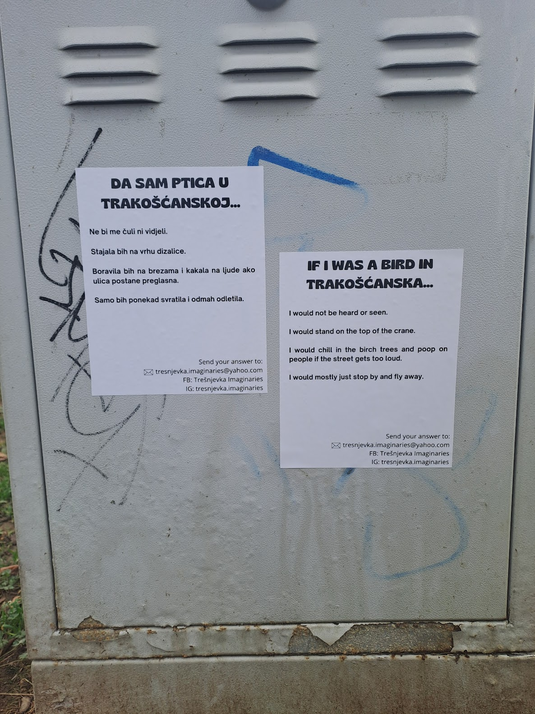 DA SAM PTICA U
TRAKOŠĆANSKOJ...
Ne bi me čuli ni vidjeli.
Stajala bih na vrhu dizalice.
Boravila bih na brezama i kakala na ljude ako
ulica postane preglasna.
Samo bih ponekad svratila i odmah odletila.
Send your answer to:
tresnjevka.imaginaries@yahoo.com
FB: Trešnjevka Imaginaries
IG: tresnjevka.imaginaries
IF I WAS A BIRD IN
TRAKOŠĆANSKA...
I would not be heard or seen.
I would stand on the top of the crane.
I would chill in the birch trees and poop on
people if the street gets too loud.
I would mostly just stop by and fly away.
Send your answer to:
tresnjevka.imaginaries@yahoo.com
FB: Trešnjevka Imaginaries
IG: tresnjevka.imaginaries